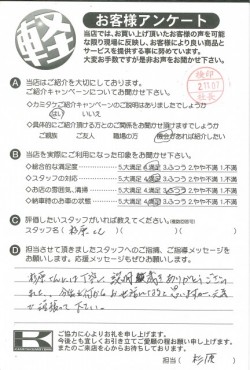 軽
お客様アンケート
当店では、お買い上げ頂いたお客様の声を可能
な限り現場に反映し、お客様により良い商品と
サービスを提供する事に努めています。
大変お手数ですが是非お声をお聞かせ下さい。
A 当店はご紹介を大切にしております。
ご紹介キャンペーンについてお聞かせ下さい
◇カミタケご紹介キャンペーンのご説明はありましたでしょうか
はい いいえ
◇具体的にご紹介頂ける方とのご関係をお聞かせ頂けますでしょうか
ご親族 ご友人 職場の方 機会があれば紹介したい
B 当店を実際にご利用になった印象をお聞かせ下さい。
◇総合的な満足度 5大満足 4.満足 3.ふつう 2.やや不満 1.不満
◇スタッフの対応 5大満足 4.満足 3.ふつう 2.やや不満 1.不満
◇お店の雰囲気、清掃 5大満足 4.満足 3.ふつう 2.やや不満 1.不満
◇納車時のお車の状態 5大満足 4.満足 3.ふつう 2.やや不満 1.不満
C 評価したいスタッフがいれば教えてください。(複数回答可)
スタッフ名( 杉原 )
D 担当させて頂きましたスタッフへのご指摘、ご指導メッセージを
お願いします。応援メッセージもぜひお願いします!
ご協力に心よりお礼を申し上げます。
今後とも宜しくお引き立てご愛顧の程お願い申し上げます。
またのご来店を心からお待ちしております。
担当( 杉原 )